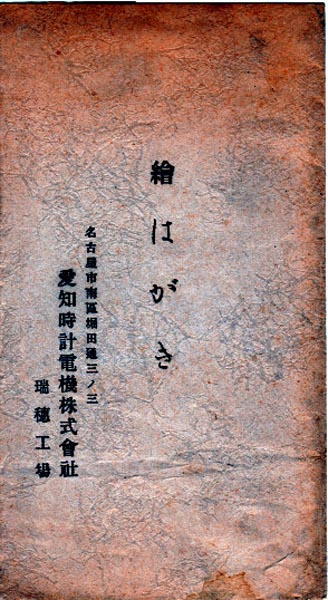 繪はがき
名古屋市南區堀田通三ノ三
愛知時計電機株式會社
瑞穗工場